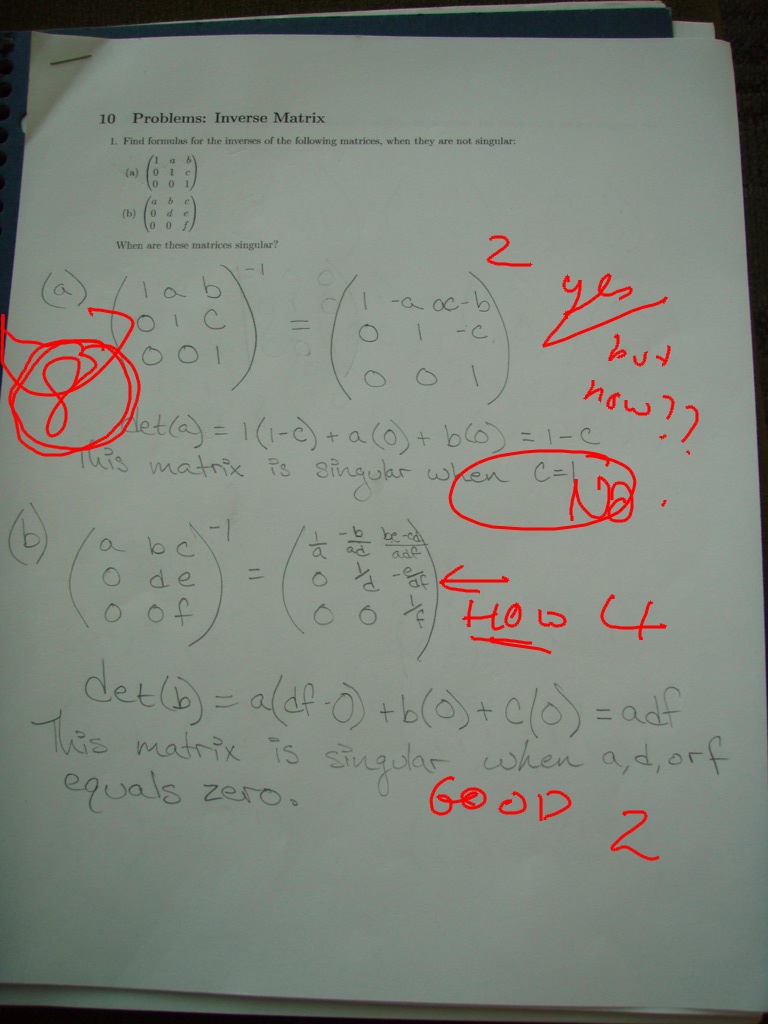 10 Problems: Inverse Matrix
1. Find formulas for the inverses of the following matrices, when they are not singular:
(a) (1 a b
0 1 c
0 0 1)
(b) (a b c
0 d e
0 0 f)
When are these matrices singular?
2
(a) (1 a b
0 1 c
0 0 1)^-1 = (1 -a ac-b
0 1 -c
0 0 1)
yes
but
how??
8
det(a) = 1(1-c) + a(0) + b(0) = 1-c
This matrix is singular when c=1
No.
(b) (a b c
0 d e
0 0 f)^-1 = (1/a -b/ad be-cd/adf
0 1/d -e/df
0 0 1/f)
HOW 4
det(b) = a(df-0) + b(0) + c(0) = adf
This matrix is singular when a, d, or f
equals zero.
GOOD
2